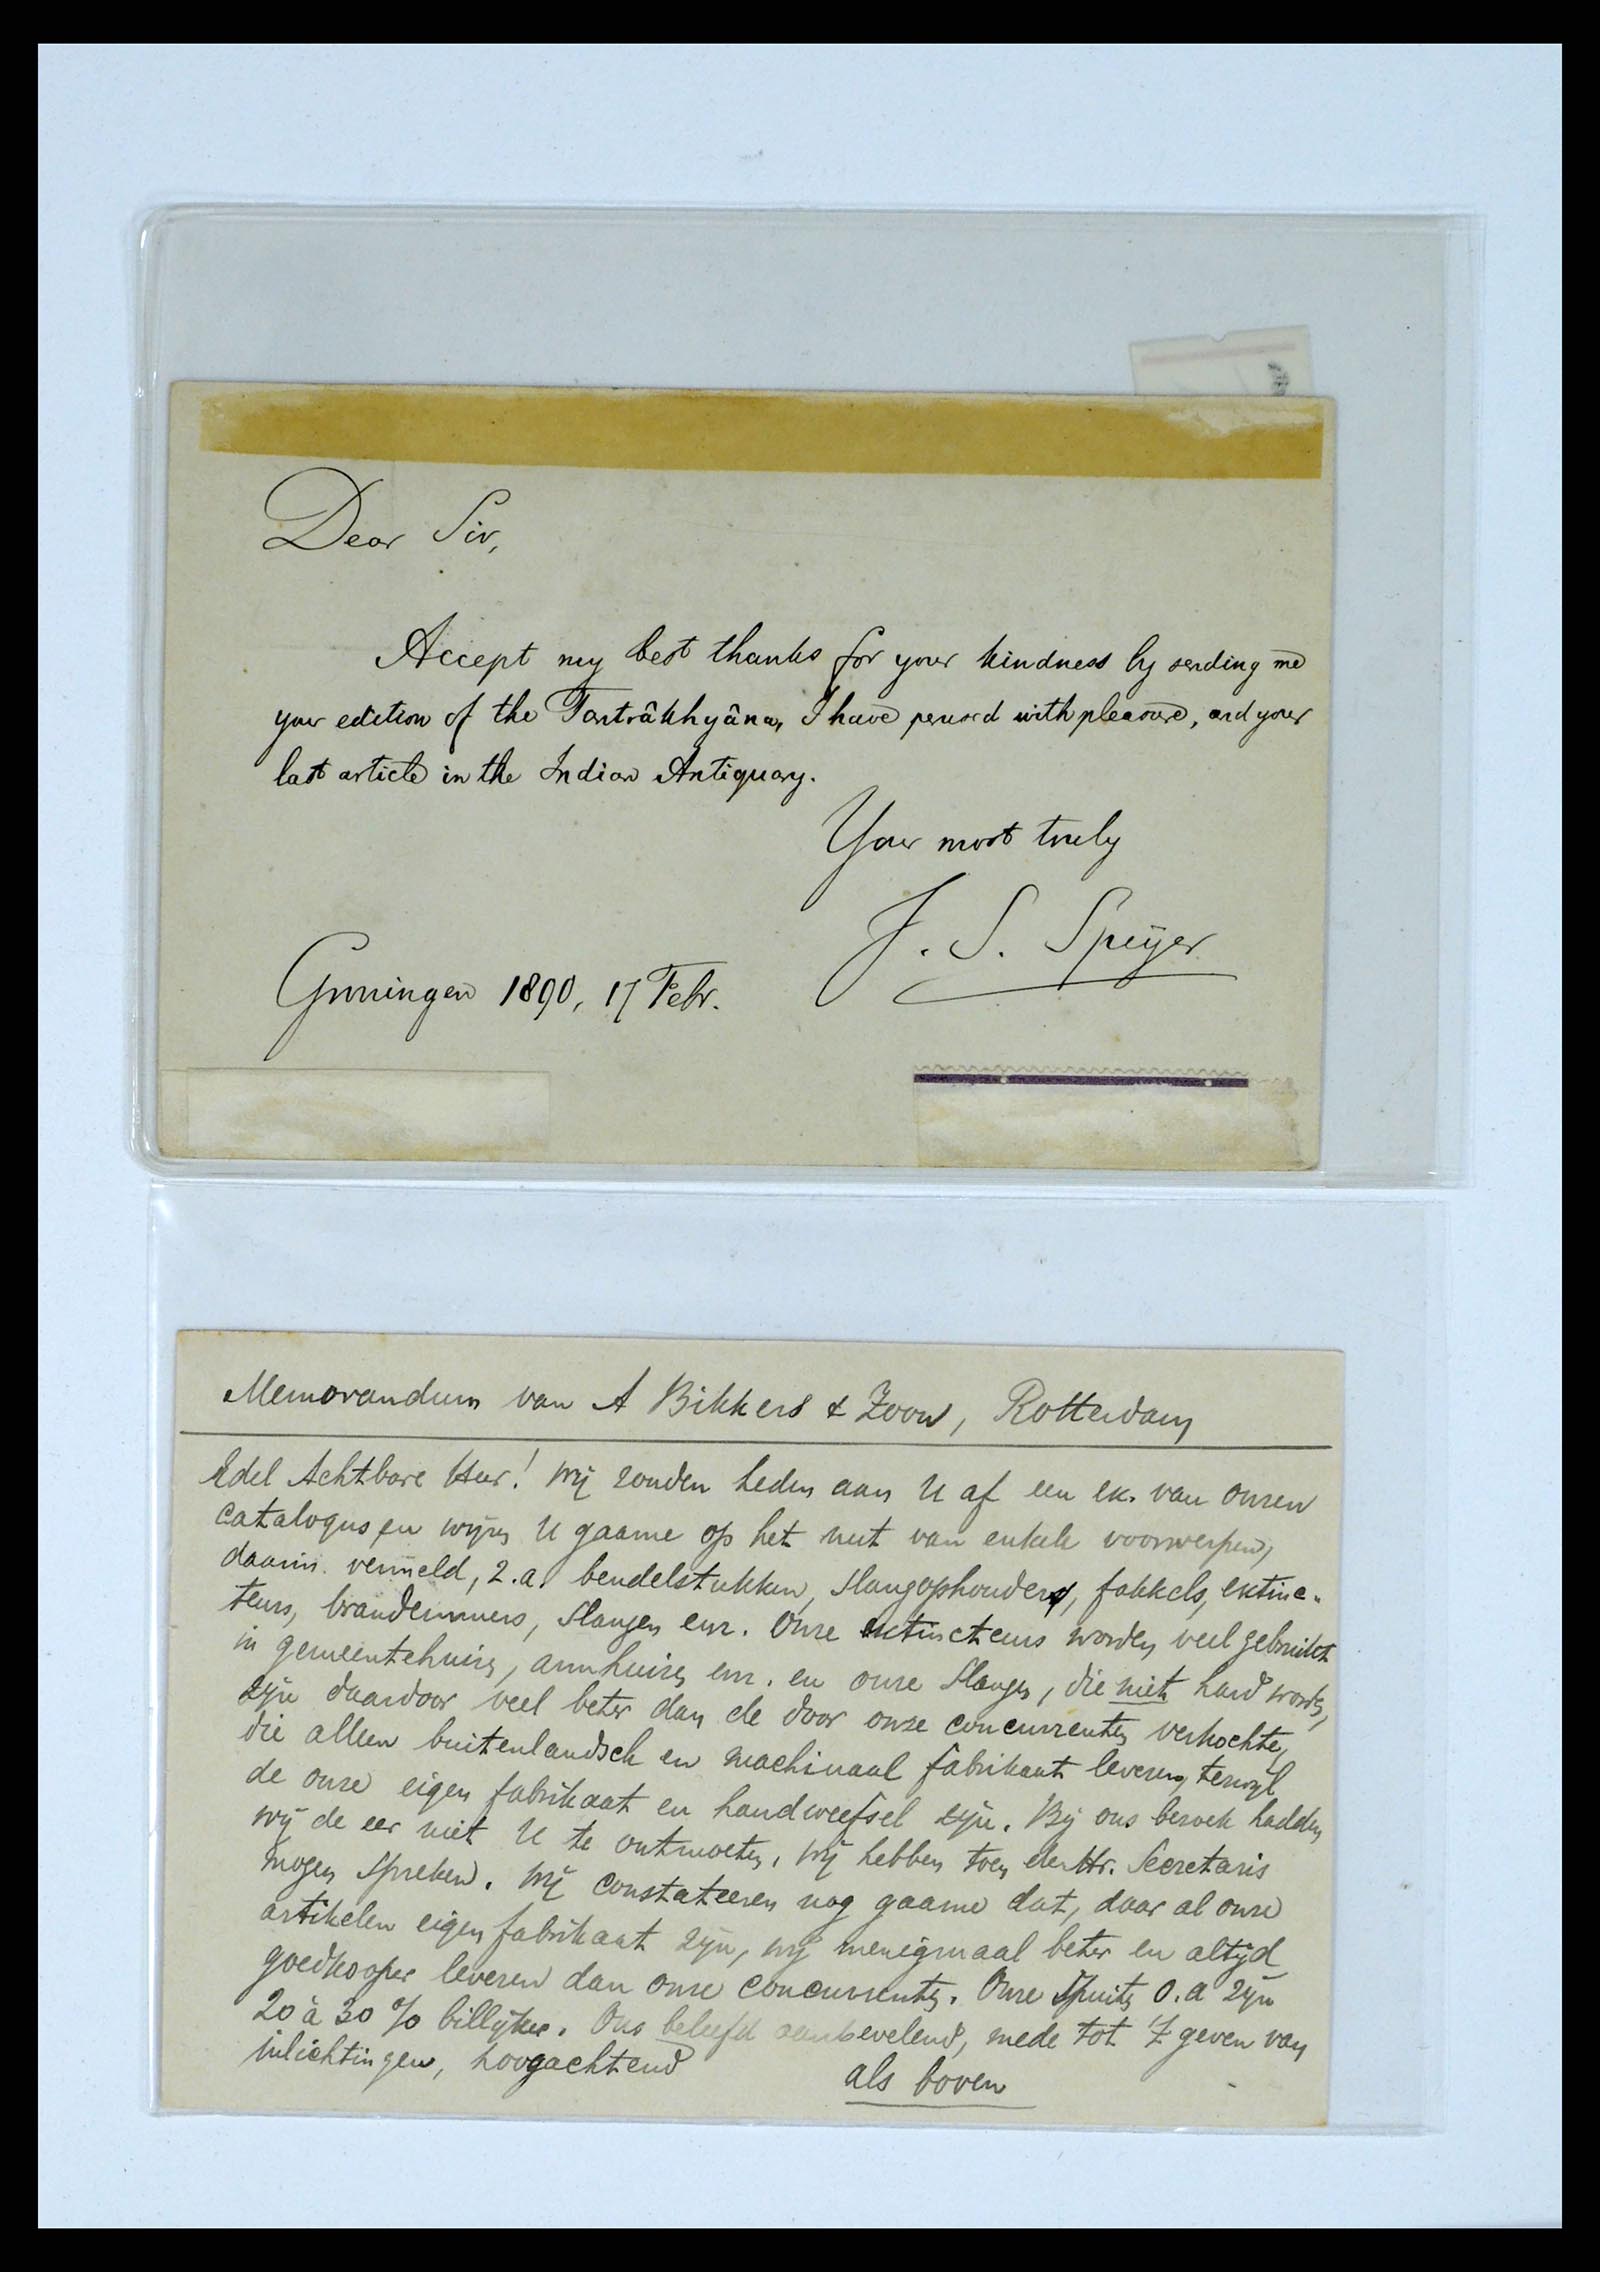 Dear Sir,
Accept my best thanks for your kindness by sending me
your edition of the Tantrâkhyâna, I have perused with pleasure, and your
last article in the Indian Antiquary.
Your most truly
J. S. Speijer
Groningen 1890, 17 Febr.
Memorandum van A Bikkers & Zoon, Rotterdam
Edel Achtbare Heer! Wij zonden heden aan U af een ex. van onzen
catalogus en wijzen U gaarne op het nut van enkele voorwerpen,
daarin vermeld, z.a. bendelstukken, slangophouders, fakkels, extinc-
teurs, brandemmers, slangen enz. Onze extincteurs worden veel gebruikt
in gemeentehuizen, armhuizen enz. en onze slangen, die niet hard worden,
zijn daardoor veel beter dan de door onze concurrenten verkochte,
die alleen buitenlandsch en machinaal fabrikaat leveren, terwijl
de onze eigen fabrikaat en handweefsel zijn. Bij ons bezoek hadden
wij de eer niet U te ontmoeten, wij hebben toen den Hr. Secretaris
mogen spreken. Wij constateeren nog gaarne dat, daar al onze
artikelen eigen fabrikaat zijn, wij menigmaal beter en altijd
goedkooper leveren dan onze concurrenten. Onze spuiten o.a zijn
20 à 30 % billijker. Ons beleefd aanbevelend, mede tot 't geven van
inlichtingen, hoogachtend
als boven